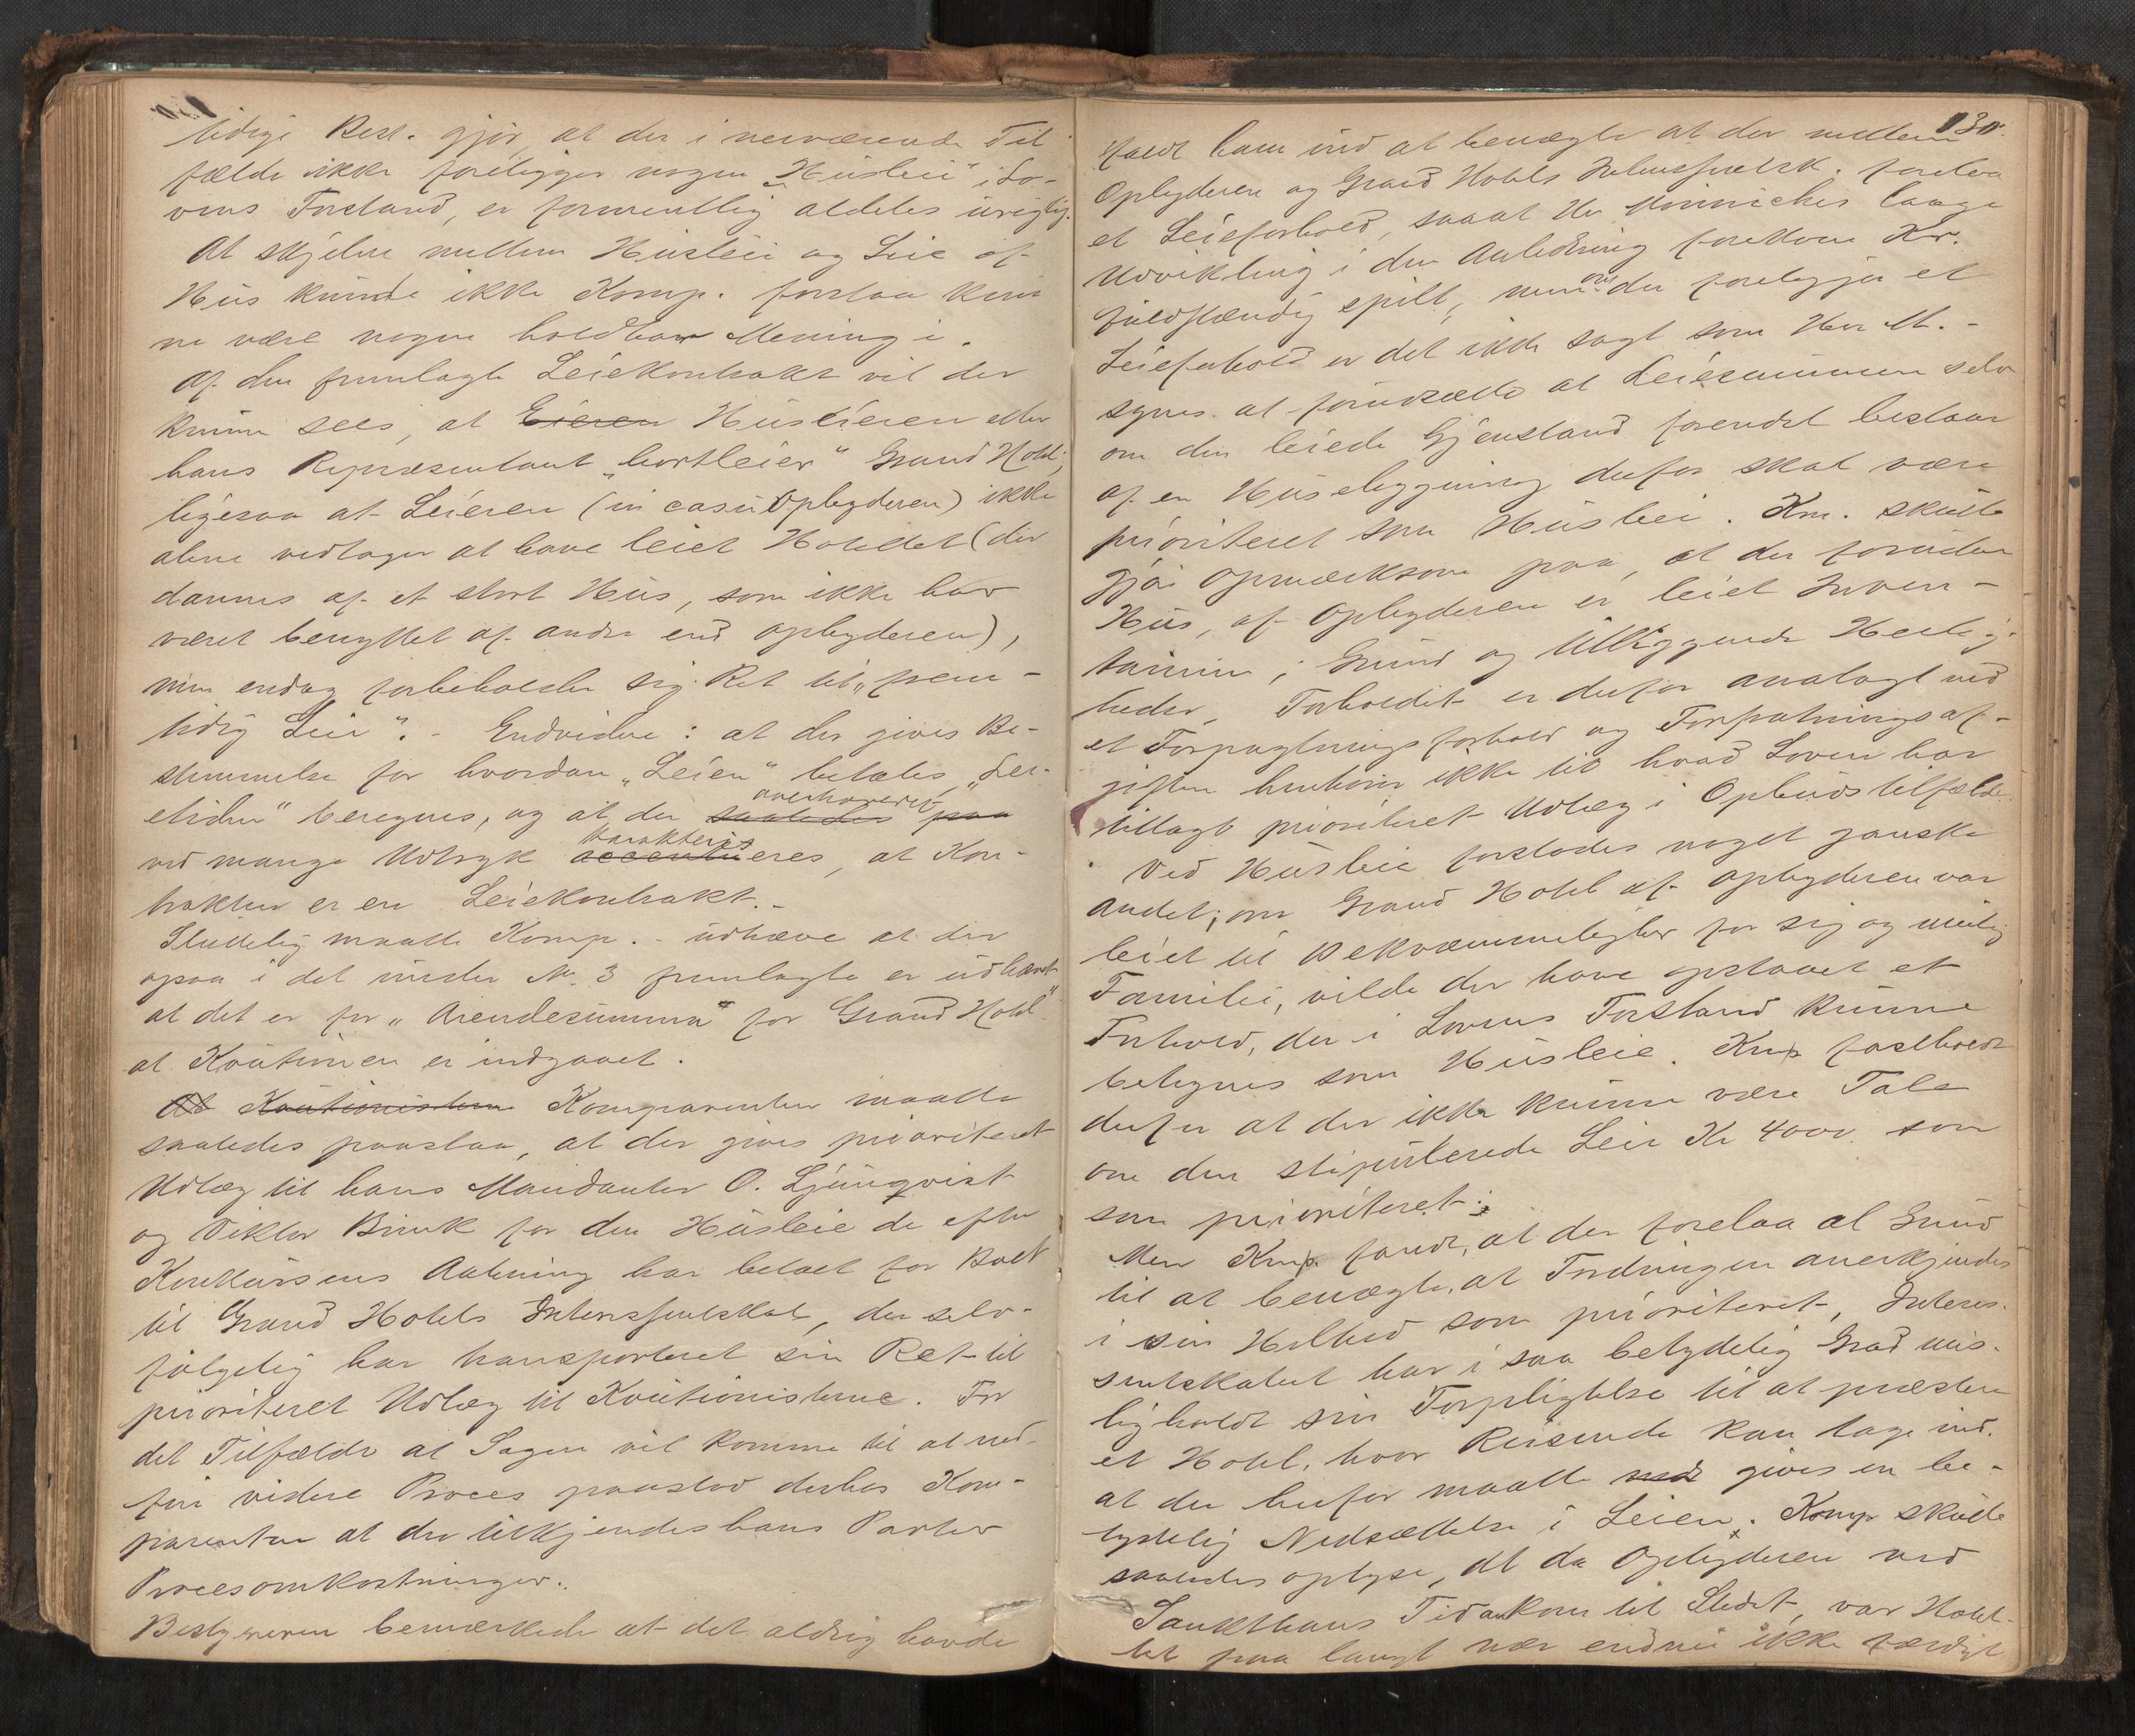 tidige Best. gjør, at der i nerværende Til
fælde ikke foreligger nogen "Husleie" i Lo-
vens Forstand, er formentlig aldeles urigtig.
At skjelne mellem Husleie og Leie af
Hus kunde ikke Komp. forstaa kun
ne være nogen holdbar Mening i.
Af den fremlagte Leiekontrakt vil der
kunne sees, at Huseieren eller
hans Repræsentant "bortleier" Grand Hotel;
ligesaa at Leieren (in casu Opbyderen) ikke
alene vedtager at have leiet Hotellet (der
dannes af et stort Hus, som ikke har
været benyttet af andre end Opbyderen),
men endog forbeholder sig Ret til "frem-
tidig Leie". - Endvidere: at der gives Be-
stemmelse for hvordan "Leien" betales, "Lei-
etiden" beregnes, og at der overhovedet
ved mange Udtryk karakteriseres, at Kon-
trakten er en Leiekontrakt. -
Sluttelig maatte Komp. - udhæve at der
ogsaa i det under No. 3 fremlagte er udhævet
at det er for "Arendesumma" for Grand Hotel"
at Kautionen er indgaaet.
Komparenten maatte
saaledes paastaa, at der gives prioriteret
Udlæg til hans Mandanter O. Ljungqvist
og Viktor Brink for den Husleie de efter
Konkursens Aabning har betalt for Boet
til Grand Hotels Interessentskab, der selv-
følgelig har transporteret sin Ret til
prioriteret Udlæg til Kautionisterne. For
det Tilfælde at Sagen vil komme til at med-
føre videre Proces paastod derhos Kom-
parenten at der tilkjendes hans Parter
Procesomkostninger.
Bestyreren bemærkede at det aldrig havde
130.
faldt ham ind at benægte at der mellem
Opbyderen og Grand Hotels Interessentsk. forelaa
et Leieforhold, saaat Hr Minniches lange
Udvikling i den Anledning forekom Kr.
fuldstændig spildt, men om der foreligger et
Leieforhold er det ikke sagt som Herr M. -
synes at forudsætte at Leiesummen selv
om den leiede Gjenstand forendel bestaar
af en Husebygning derfor skal være
prioriteret som Husleie. Km. skulde
gjøre opmærksom paa, at der foruden
Hus, af Opbyderen er leiet Inven-
tarium, Grund og tilliggende Herlig-
heder, Forholdet er derfor analogt med
et Forpagtningsforhold og Forpagtningsaf-
giften henhører ikke til hvad Loven har
tillagt prioriteret Udlæg i Opbudstilfælde.
Ved Husleie forstodes noget ganske
andet; om Grand Hotel af Opbyderen var
leiet til Bekvæmmeligheder for sig og mulig
Familie, vilde der have opstaaet et
Forhold, der i Lovens Forstand kunne
betegnes som Husleie. Kmp fastholdt
derfor at der ikke kunne være Tale
om den stipulerede Leie Kr 4000 som
som prioriteret.
Men Kmp. fandt, at der forelaa al Grund
til at benægte, at Fordringen anerkjendes
i sin Helhed som prioriteret, Interes-
sentskabet har i saa betydelig Grad mis-
ligholdt sin Forpligtelse til at præstere
et Hotel, hvor Reisende kan tage ind.
at der herfor maatte gives en be-
tydelig Nedsættelse i Leien. Komp skulde
saaledes oplyse, at da Opbyderen ved
Sankthans Tid ankom til Stedet, var Hotel-
let paa langt nær endnu ikke færdigt